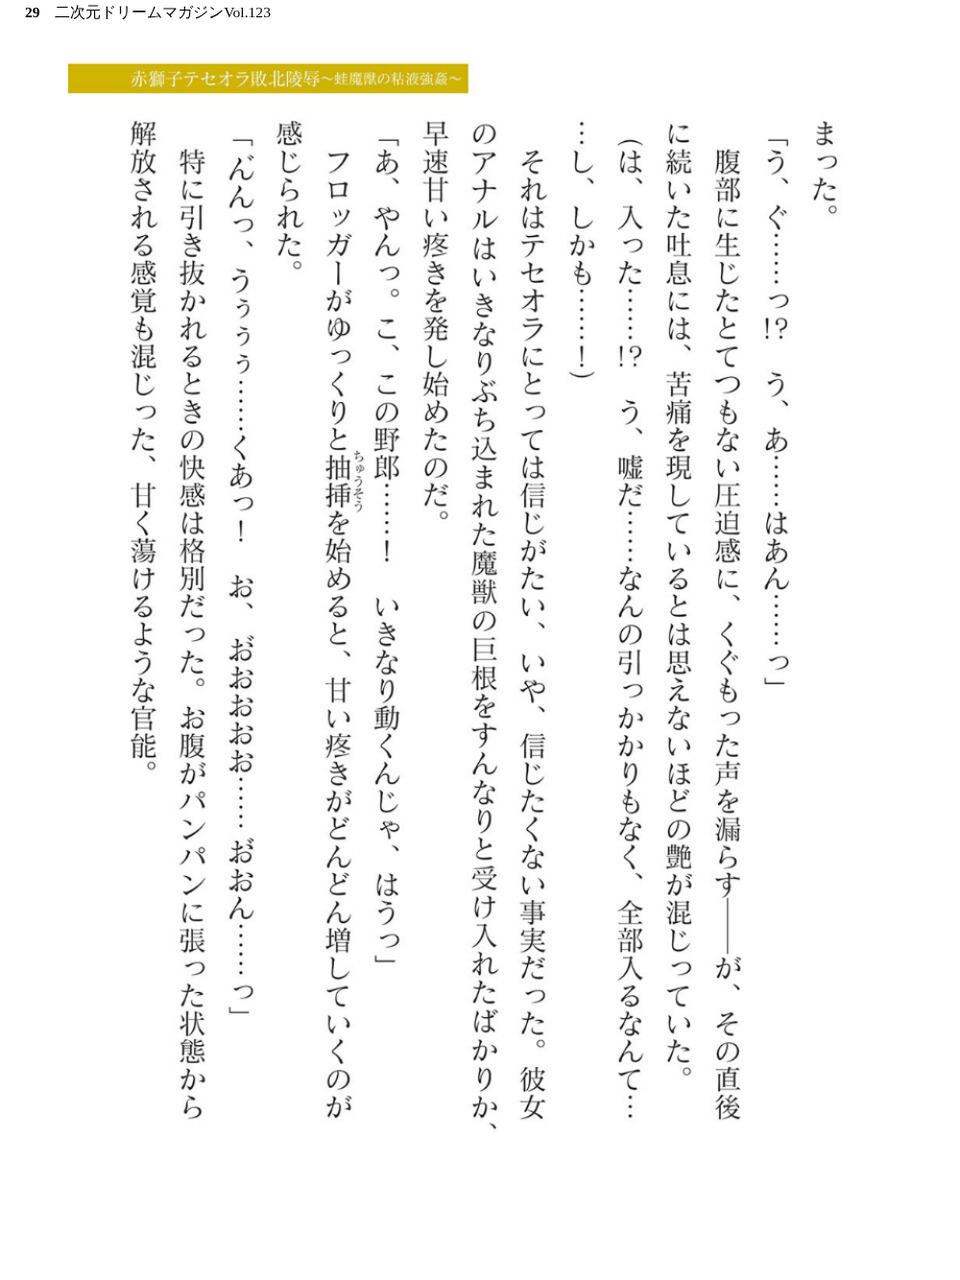 29 二次元ドリームマガジンVol.123
赤獅子テセオラ敗北陵辱～蛙魔獣の粘液強姦～
まった。
「う、ぐ……っ!?　う、あ……はあん……っ」
　腹部に生じたとてつもない圧迫感に、くぐもった声を漏らす――が、その直後
に続いた吐息には、苦痛を現しているとは思えないほどの艶が混じっていた。
（は、入った……!?　う、嘘だ……なんの引っかかりもなく、全部入るなんて…
…し、しかも……！）
　それはテセオラにとっては信じがたい、いや、信じたくない事実だった。彼女
のアナルはいきなりぶち込まれた魔獣の巨根をすんなりと受け入れたばかりか、
早速甘い疼きを発し始めたのだ。
「あ、やんっ。こ、この野郎……！　いきなり動くんじゃ、はうっ」
　フロッガーがゆっくりと抽挿を始めると、甘い疼きがどんどん増していくのが
ちゅうそう
感じられた。
「ん゛んっ、うぅぅぅ……くあっ！　お、お゛おおおお……お゛おん……っ」
　特に引き抜かれるときの快感は格別だった。お腹がパンパンに張った状態から
解放される感覚も混じった、甘く蕩けるような官能。